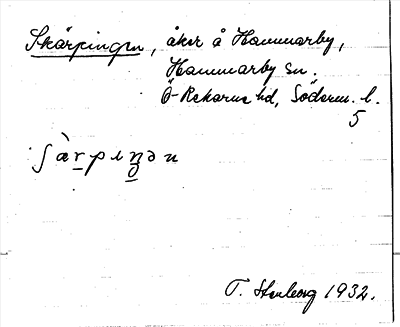 Skärpingen, åker å Hammarby,
Hammarby sn.
Ö-Rekarne hd, Söderm. l.
5
ʃàrpɩŋən
T. Stenborg 1932.